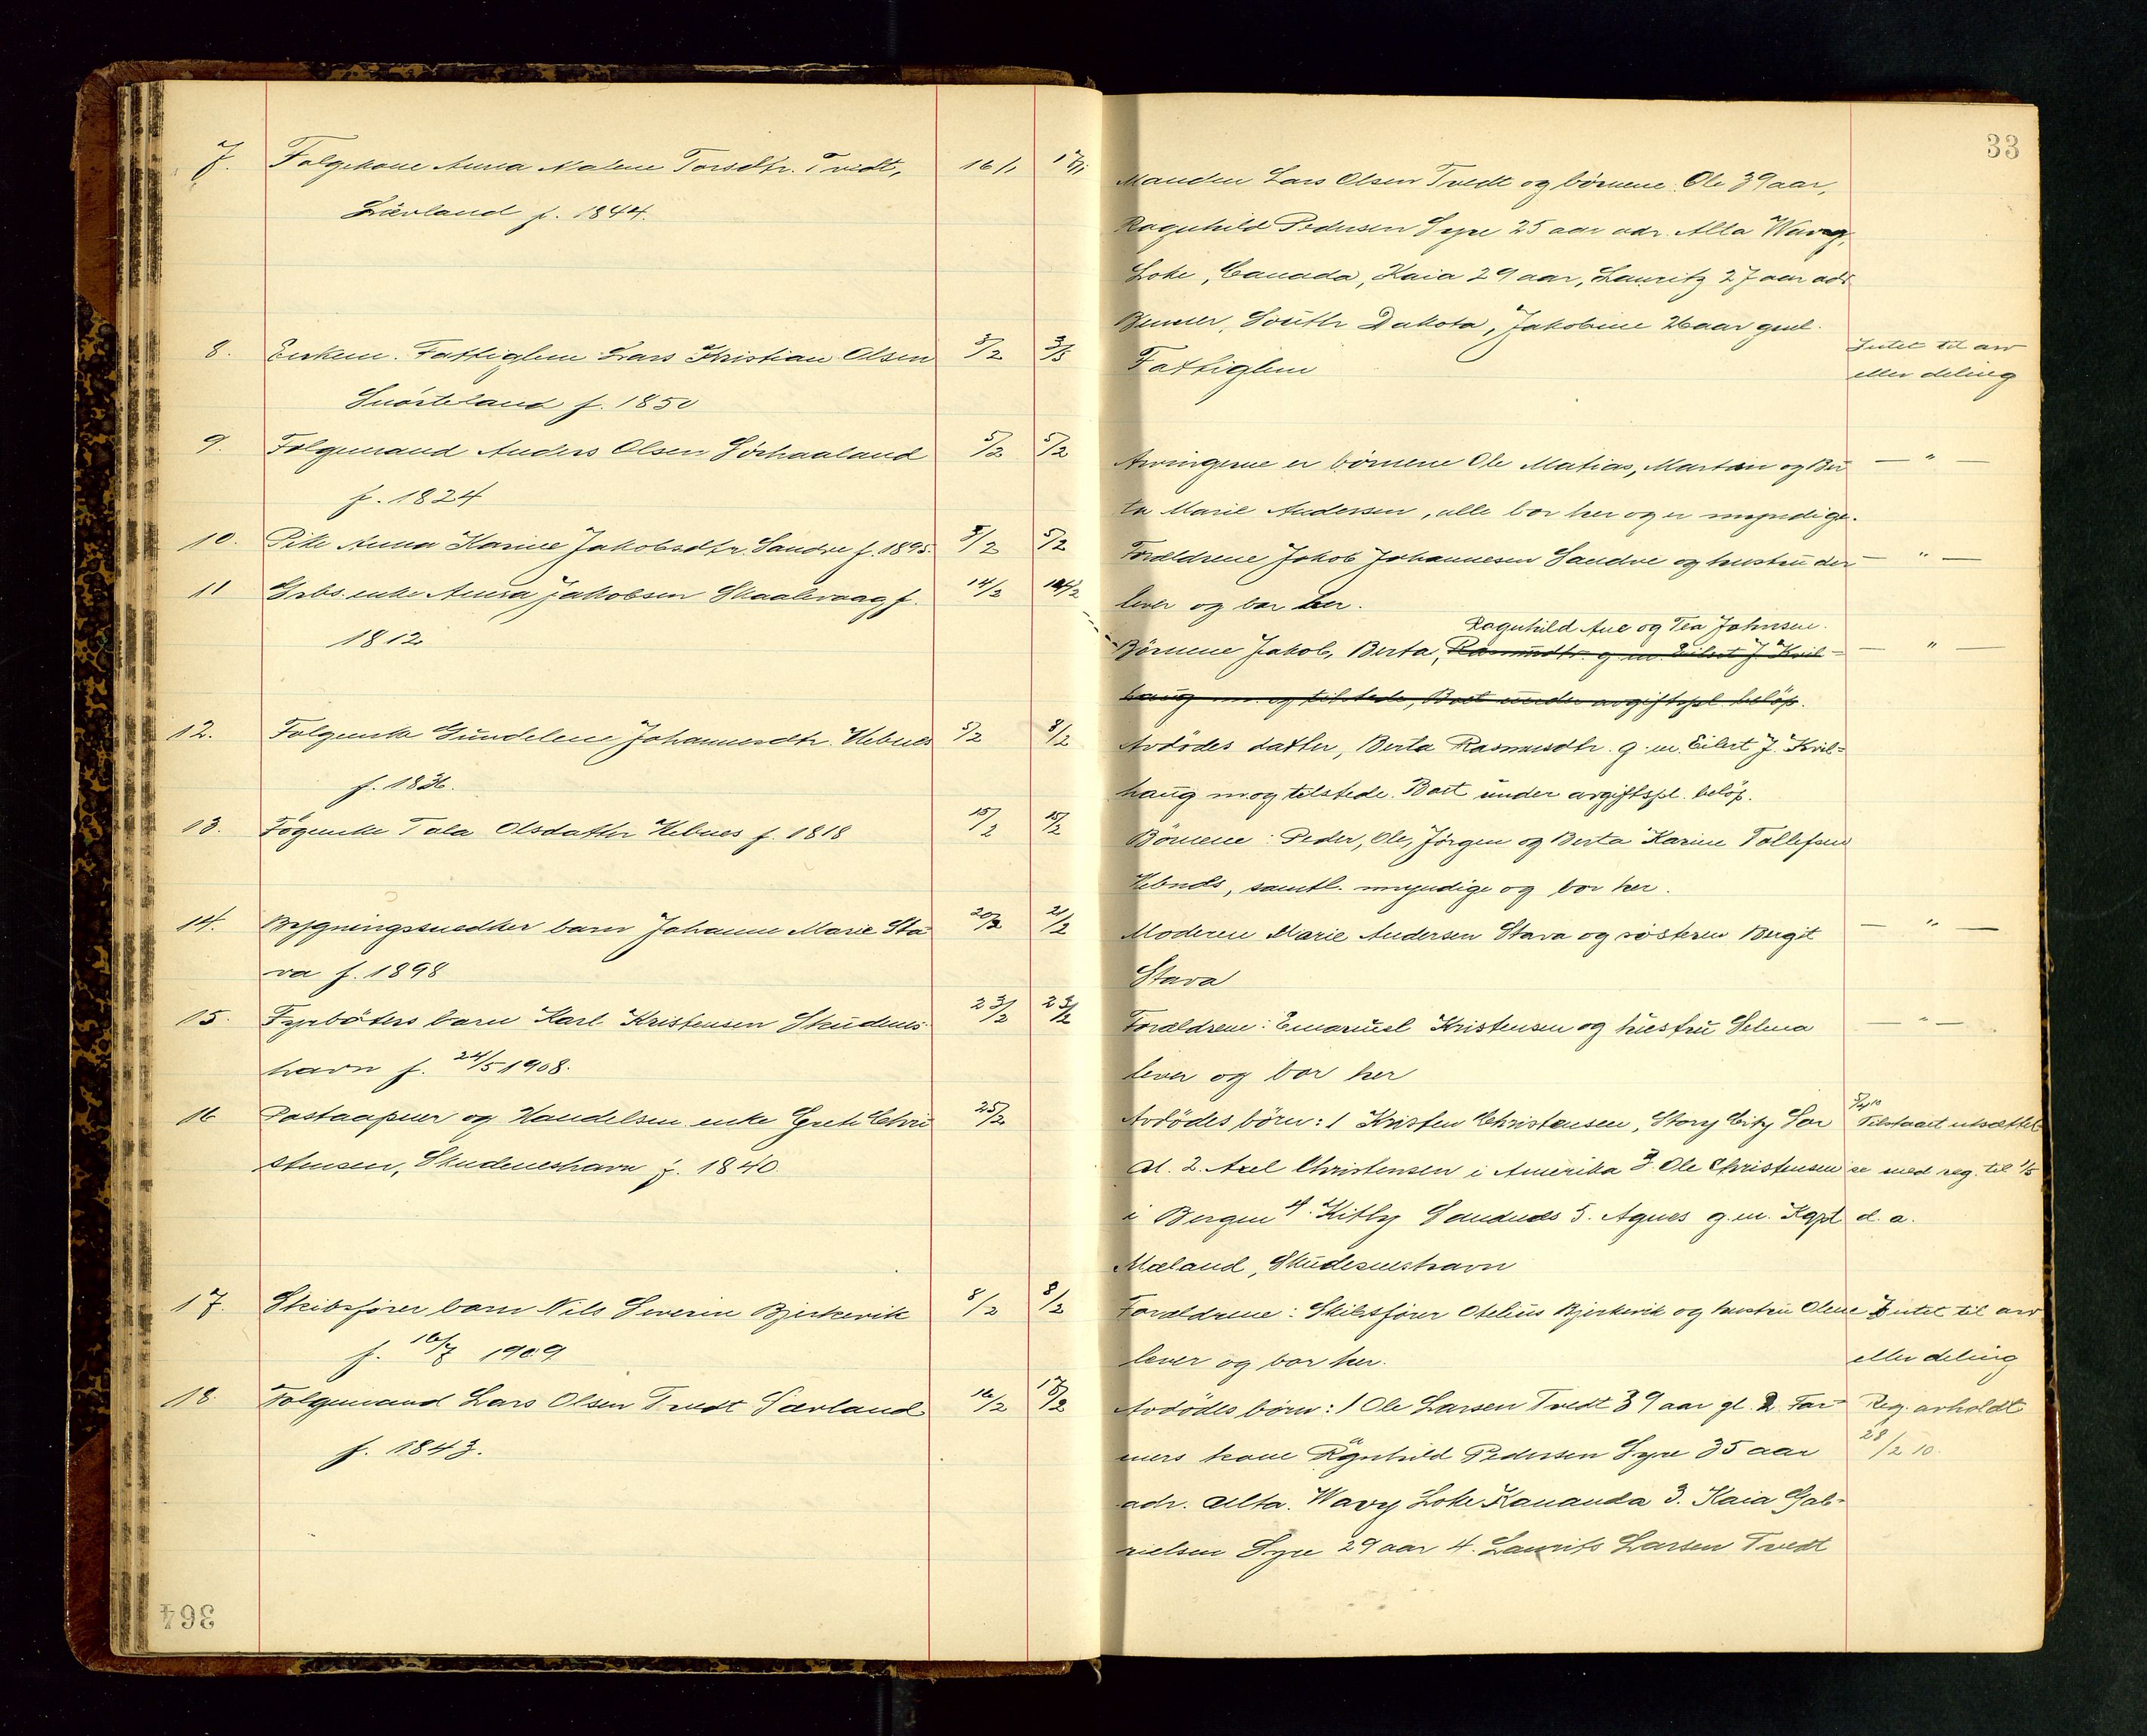 33
7. Folgekone Anna Malene Torsdtr. Tvedt, 16/1 17/1
Sævland f. 1844.
Manden Lars Olsen Tvedt og börnene Ole 39 aar,
Ragnhild Pedersen Syre 25 aar adr. Alta Wavy,
Loke, Canada, Kaia 29 aar, Lauritz 27 aar adr
South Dakota, Jakobine 26 aar
8. Enkem. Fattiglem Lars Kristian Olsen 3/2 3/3 Fattiglem Intet til arv
Snörteland f. 1850 eller deling
9. Folgemand Anders Olsen Sörhaaland 5/2 5/2 Arvingerne er börnene Ole Matias, Martin og Ber — " —
f. 1824 ta Marie Andersen, alle bor her og er myndige.
10. Pike Anna Karine Jakobsdtr. Sandve f. 1895. 5/2 5/2 Forældrene Jakob Johannesen Sandve og hustru der — " —
lever og bor her.
11 Grbs. enke Anna Jakobsen Skaalevaag f. 14/2 14/2
1812
Ragnhild Ane og Tea Johnsen.
Börnene Jakob, Berta, Rasmusdtr. g. m. Eilert J. Kvil= — " —
haug m. og tilstede, Boet under avgiftspl. belöp.
12. Folgeenke Gundelene Johannesdtr. Hebnes 5/2 8/2 Avdödes datter, Berta Rasmusdtr. g. m. Eilert J. Kvil=
f. 1836. haug m. og tilstede. Boet under avgiftspl. belöp.
13. Fögeenke Tala Olsdatter Hebnes f. 1818 15/2 15/2 Börnene: Peder, Ole, Jörgen og Berta Karine Tollefsen
Hebnes, samtl. myndige og bor her.
14. Bygningssnedker barn Johanne Marie Sta 20/2 21/2 Moderen Marie Andersen Stava og sösteren Bergit — " —
va f. 1898 Stava
15. Fyrböters barn Karl Kristensen Skudenes 23/2 23/2 Forældrene: Emanuel Kristensen og hustru Selma — " —
havn f. 24/5 1908. lever og bor her
16 Postaapner og Handelsm. enke Grete Chri 25/2 Avdödes börn: 1 Kristen Christensen, Story City Tilstaaet utsættel
stensen, Skudeneshavn f. 1840. 2. Axel Christensen i Amerika 3. Ole Christensen se med reg. til 1/5
i Bergen 4. Kitty Sandnes 5. Agnes g. m. Kapt d. a.
Mæland, Skudeneshavn
17. Skibsförer barn Nils Severin Bjerkevik 8/2 8/2 Forældrene: Skibsförer Otelius Bjerkevik og hustru Olene Intet til arv
f. 16/7 1909 lever og bor her. eller deling
18. Folgemand Lars Olsen Tvedt Sævland 16/2 17/2 Avdödes börn: 1 Ole Larsen Tvedt 39 aar gl. 2. Far= Reg. avholdt
f. 1843. mers kone Ragnhild Pedersen Syre 35 aar 28/2 10.
adr. Alta. Wavy Loke Kananda 3. Kaia Gab=
rielsen Syre 29 aar 4. Laurits Larsen Tvedt
364